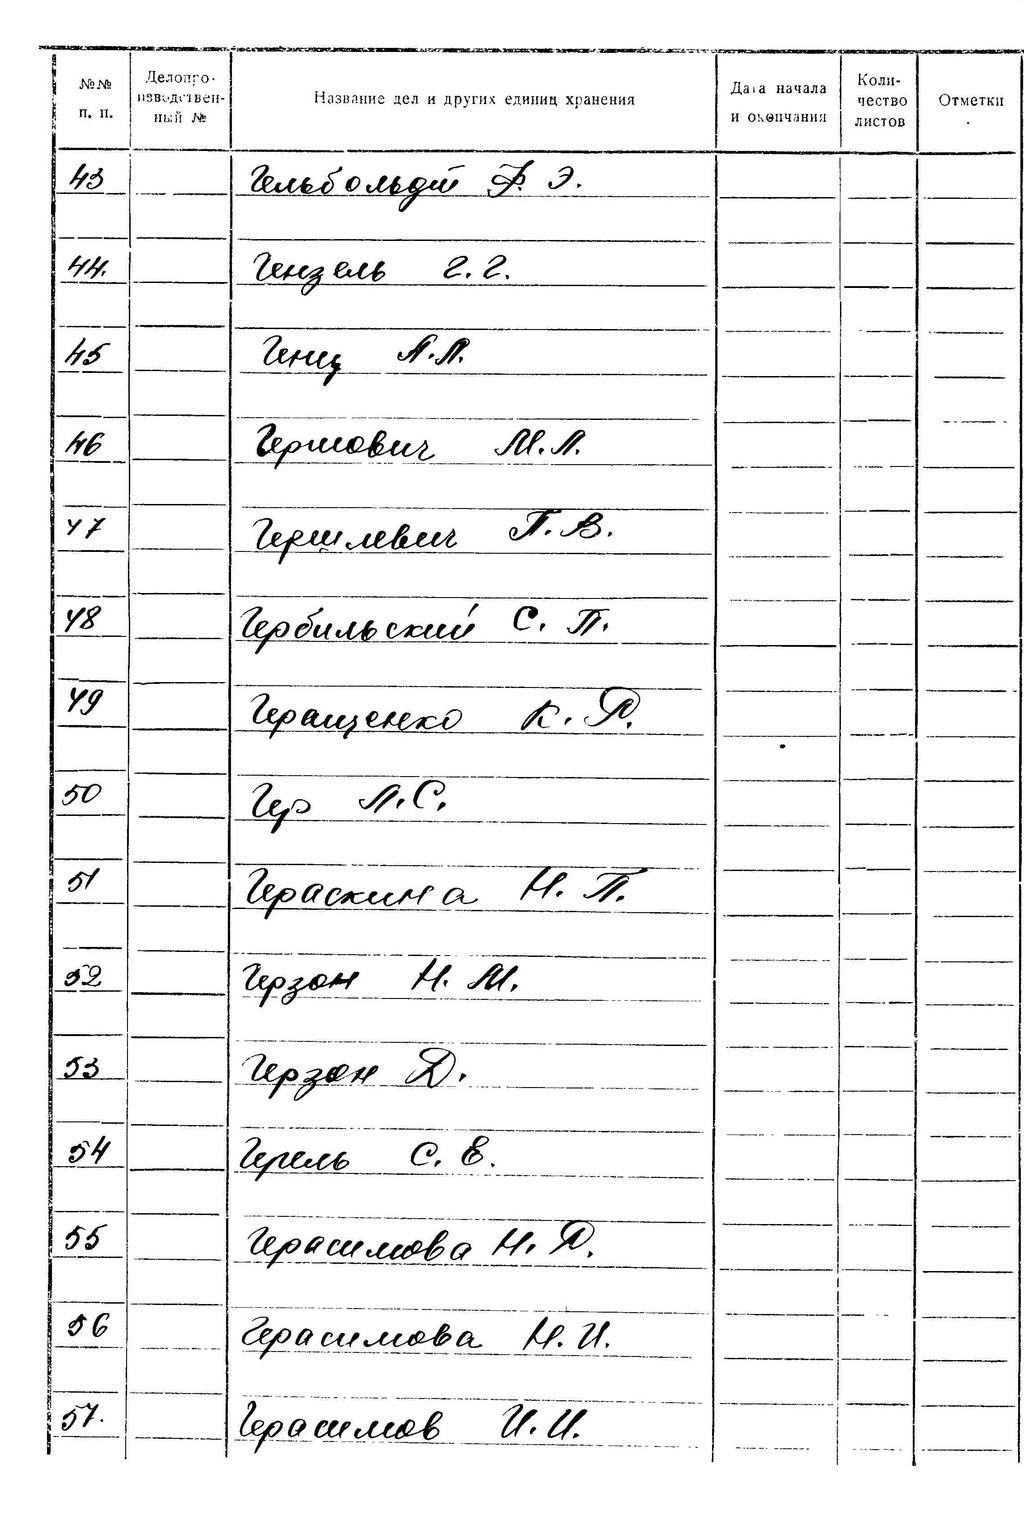 №№ п. п.
Делопроизводственный №
Название дел и других единиц хранения
Дата начала и окончания
Количество листов
Отметки
43 Гельбольдт Ф. Э.
44. Гензель Г. Г.
45 Генц А. Л.
46 Гершович М. Л.
47 Гершлевич Т. В.
48 Гербильский С. П.
49 Геращенко К. Р.
50 Гер Л. С.
51 Гераскина Н. П.
52 Герзон Н. М.
53 Герзон Д.
54 Герель С. Е.
55 Герасимова Н. Д.
56 Герасимова Н. И.
57. Герасимов И. И.